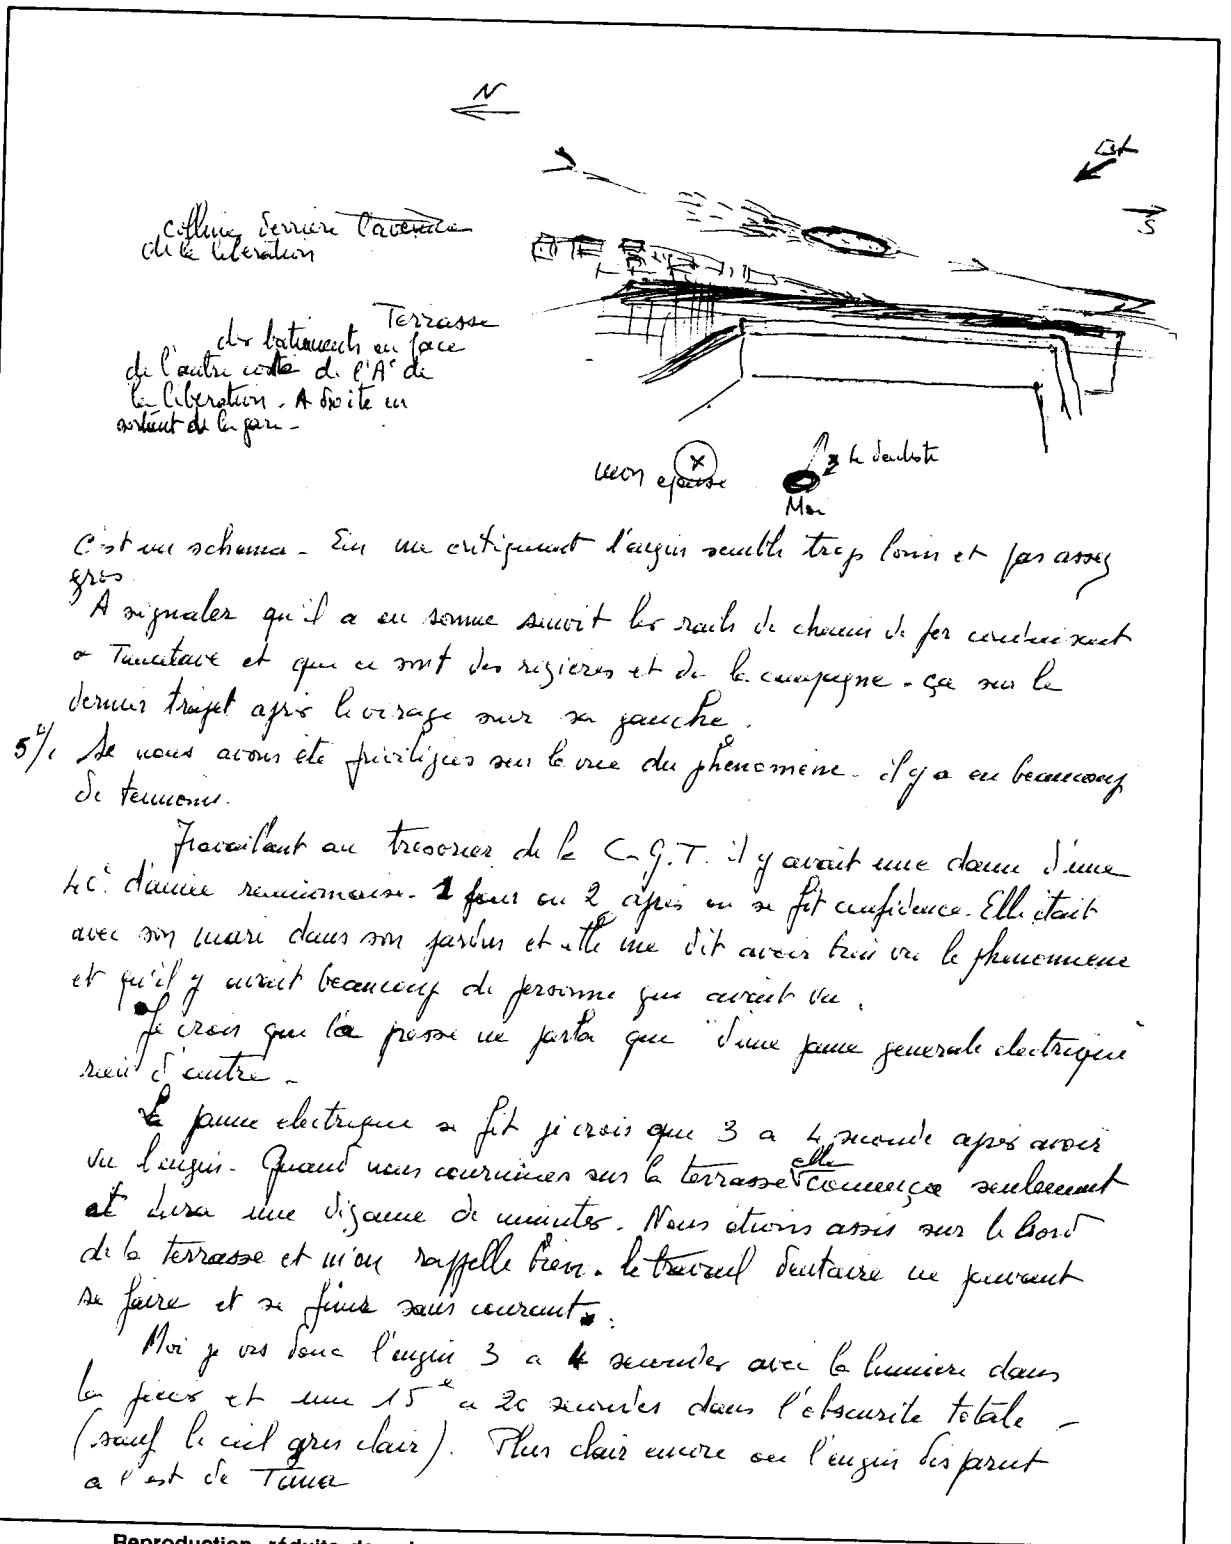 N
Est
S
colline derriere l'avenue
de la liberation
Terrasse
des batiments en face
de l'autre coté de l'Ae de
la liberation. A droite en
sortant de la gare -
mon epouse
le dentiste
Moi
C'est un schema - En me critiquant l'engin semble trop loin et pas assez
gros
A signaler qu'il a en somme suivit les rails de chemin de fer conduisant
a Tamatave et que ce sont des rizieres et de la campagne - ça sur le
dernier trajet apres le virage sur sa gauche.
5°/. Si nous avons été privilegies sur la vue du phénomene. il y a eu beaucoup
de temoins.
Travaillant au tresorier de la C.G.T. il y avait une dame d'une
4c. d'année reunionnaise. 1 jour ou 2 après on se fit confidence. Elle était
avec son mari dans son jardin et elle me dit avoir bien vu le phenomene
et qu'il y avait beaucoup de personne qui avait vu.
Je crois que la presse ne parla que "d'une panne generale electrique"
rien d'autre -
La panne electrique se fit je crois que 3 a 4 seconde apres avoir
vu l'engin - Quand nous courrumes sur la terrasse elle commença seulement
et dura une dizaine de minutes. Nous étions assis sur le bord
de la terrasse et m'en rappelle bien - le travail dentaire ne pouvant
se faire et se finir sans courant.
Moi je vis donc l'engin 3 a 4 secondes avec la lumiere dans
la piece et une 15e a 20 secondes dans l'obscurite totale -
(sauf le ciel gris clair). Plus clair encore ou l'engin disparut
a l'est de Tana